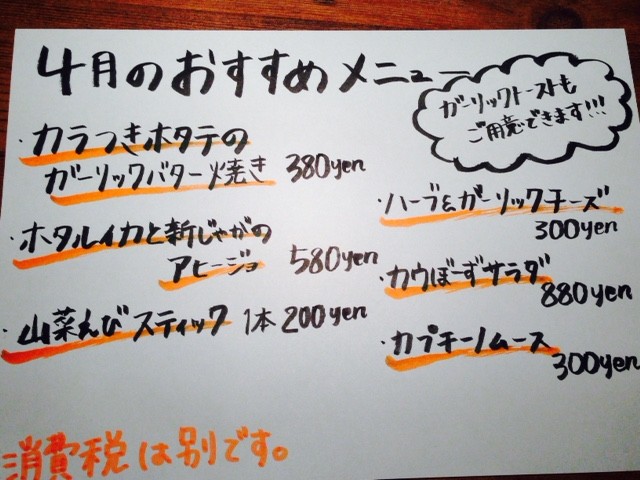 4月のおすすめメニュー
ガーリックトーストも
ご用意できます!!!
・カラつきホタテの
ガーリックバター焼き 380yen
・ホタルイカと新じゃがの
アヒージョ 580yen
・山菜えびスティック 1本 200yen
・ハーブ&ガーリックチーズ
300yen
・カウぼーずサラダ
880yen
・カプチーノムース
300yen
消費税は別です。